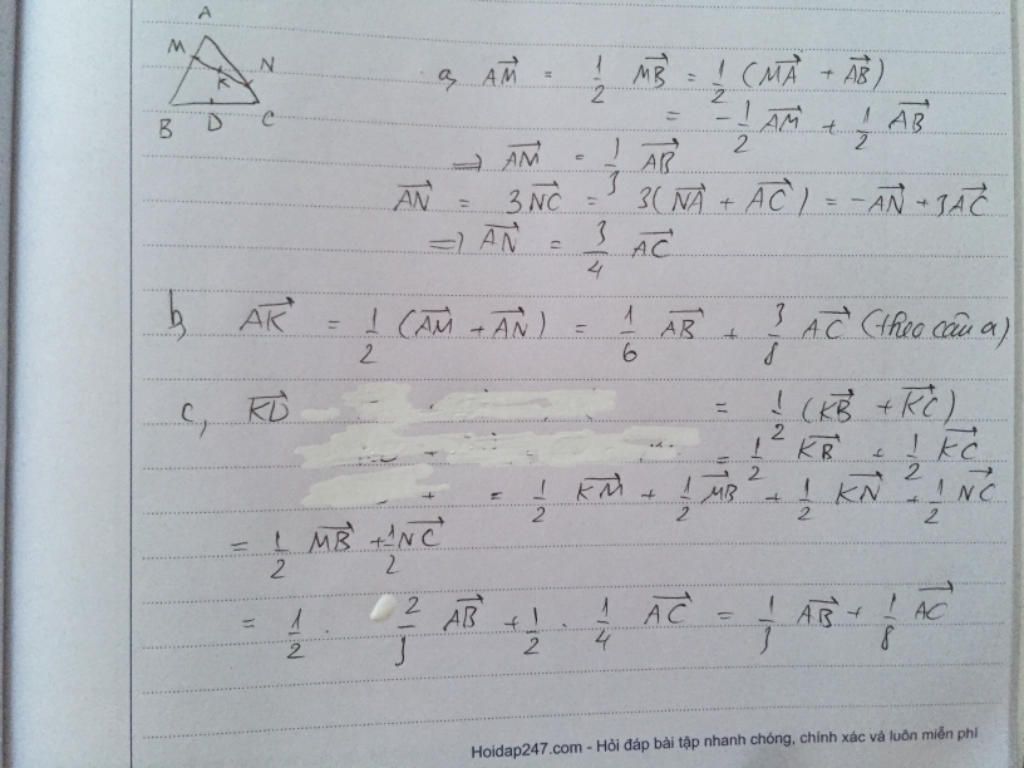 A
M
N
K
B
D
C
a, $\overrightarrow{AM} = \frac{1}{2} \overrightarrow{MB} = \frac{1}{2} (\overrightarrow{MA} + \overrightarrow{AB})$
$= -\frac{1}{2} \overrightarrow{AM} + \frac{1}{2} \overrightarrow{AB}$
$\Rightarrow \overrightarrow{AM} = \frac{1}{3} \overrightarrow{AB}$
$\overrightarrow{AN} = 3\overrightarrow{NC} = 3(\overrightarrow{NA} + \overrightarrow{AC}) = -\overrightarrow{AN} + 3\overrightarrow{AC}$
$\Rightarrow \overrightarrow{AN} = \frac{3}{4} \overrightarrow{AC}$
b, $\overrightarrow{AK} = \frac{1}{2} (\overrightarrow{AM} + \overrightarrow{AN}) = \frac{1}{6} \overrightarrow{AB} + \frac{3}{8} \overrightarrow{AC}$ (theo câu a)
c, $\overrightarrow{KD} = \frac{1}{2} (\overrightarrow{KB} + \overrightarrow{KC})$
$= \frac{1}{2} \overrightarrow{KB} + \frac{1}{2} \overrightarrow{KC}$
$+ = \frac{1}{2} \overrightarrow{KM} + \frac{1}{2} \overrightarrow{MB} + \frac{1}{2} \overrightarrow{KN} + \frac{1}{2} \overrightarrow{NC}$
$= \frac{1}{2} \overrightarrow{MB} + \frac{1}{2} \overrightarrow{NC}$
$= \frac{1}{2} . \frac{2}{3} \overrightarrow{AB} + \frac{1}{2} . \frac{1}{4} \overrightarrow{AC} = \frac{1}{3} \overrightarrow{AB} + \frac{1}{8} \overrightarrow{AC}$
Hoidap247.com - Hỏi đáp bài tập nhanh chóng, chính xác và luôn miễn phí